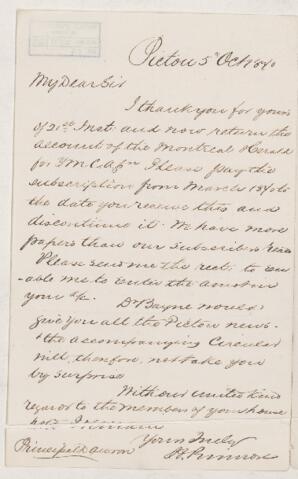 Pictou 5 Oct 1880
My Dear Sir
I thank you for yours
of 21st Inst. and now return the
account of the Montreal Herald
for YMCAssn. Please pay the
subscription from March 1876 to
the date you receive this and
discontinue it. We have more
papers than our subscribers read
Please send me the rect. to en-
able me to enter the amot. in
your a/c. Dr Bayne would
give you all the Pictou news.
& the accompanying Circular
will, therefore, not take you
by surprise
With our united kind
regards to the members of your house
hold
Yours truly
Primrose
Principal Dawson